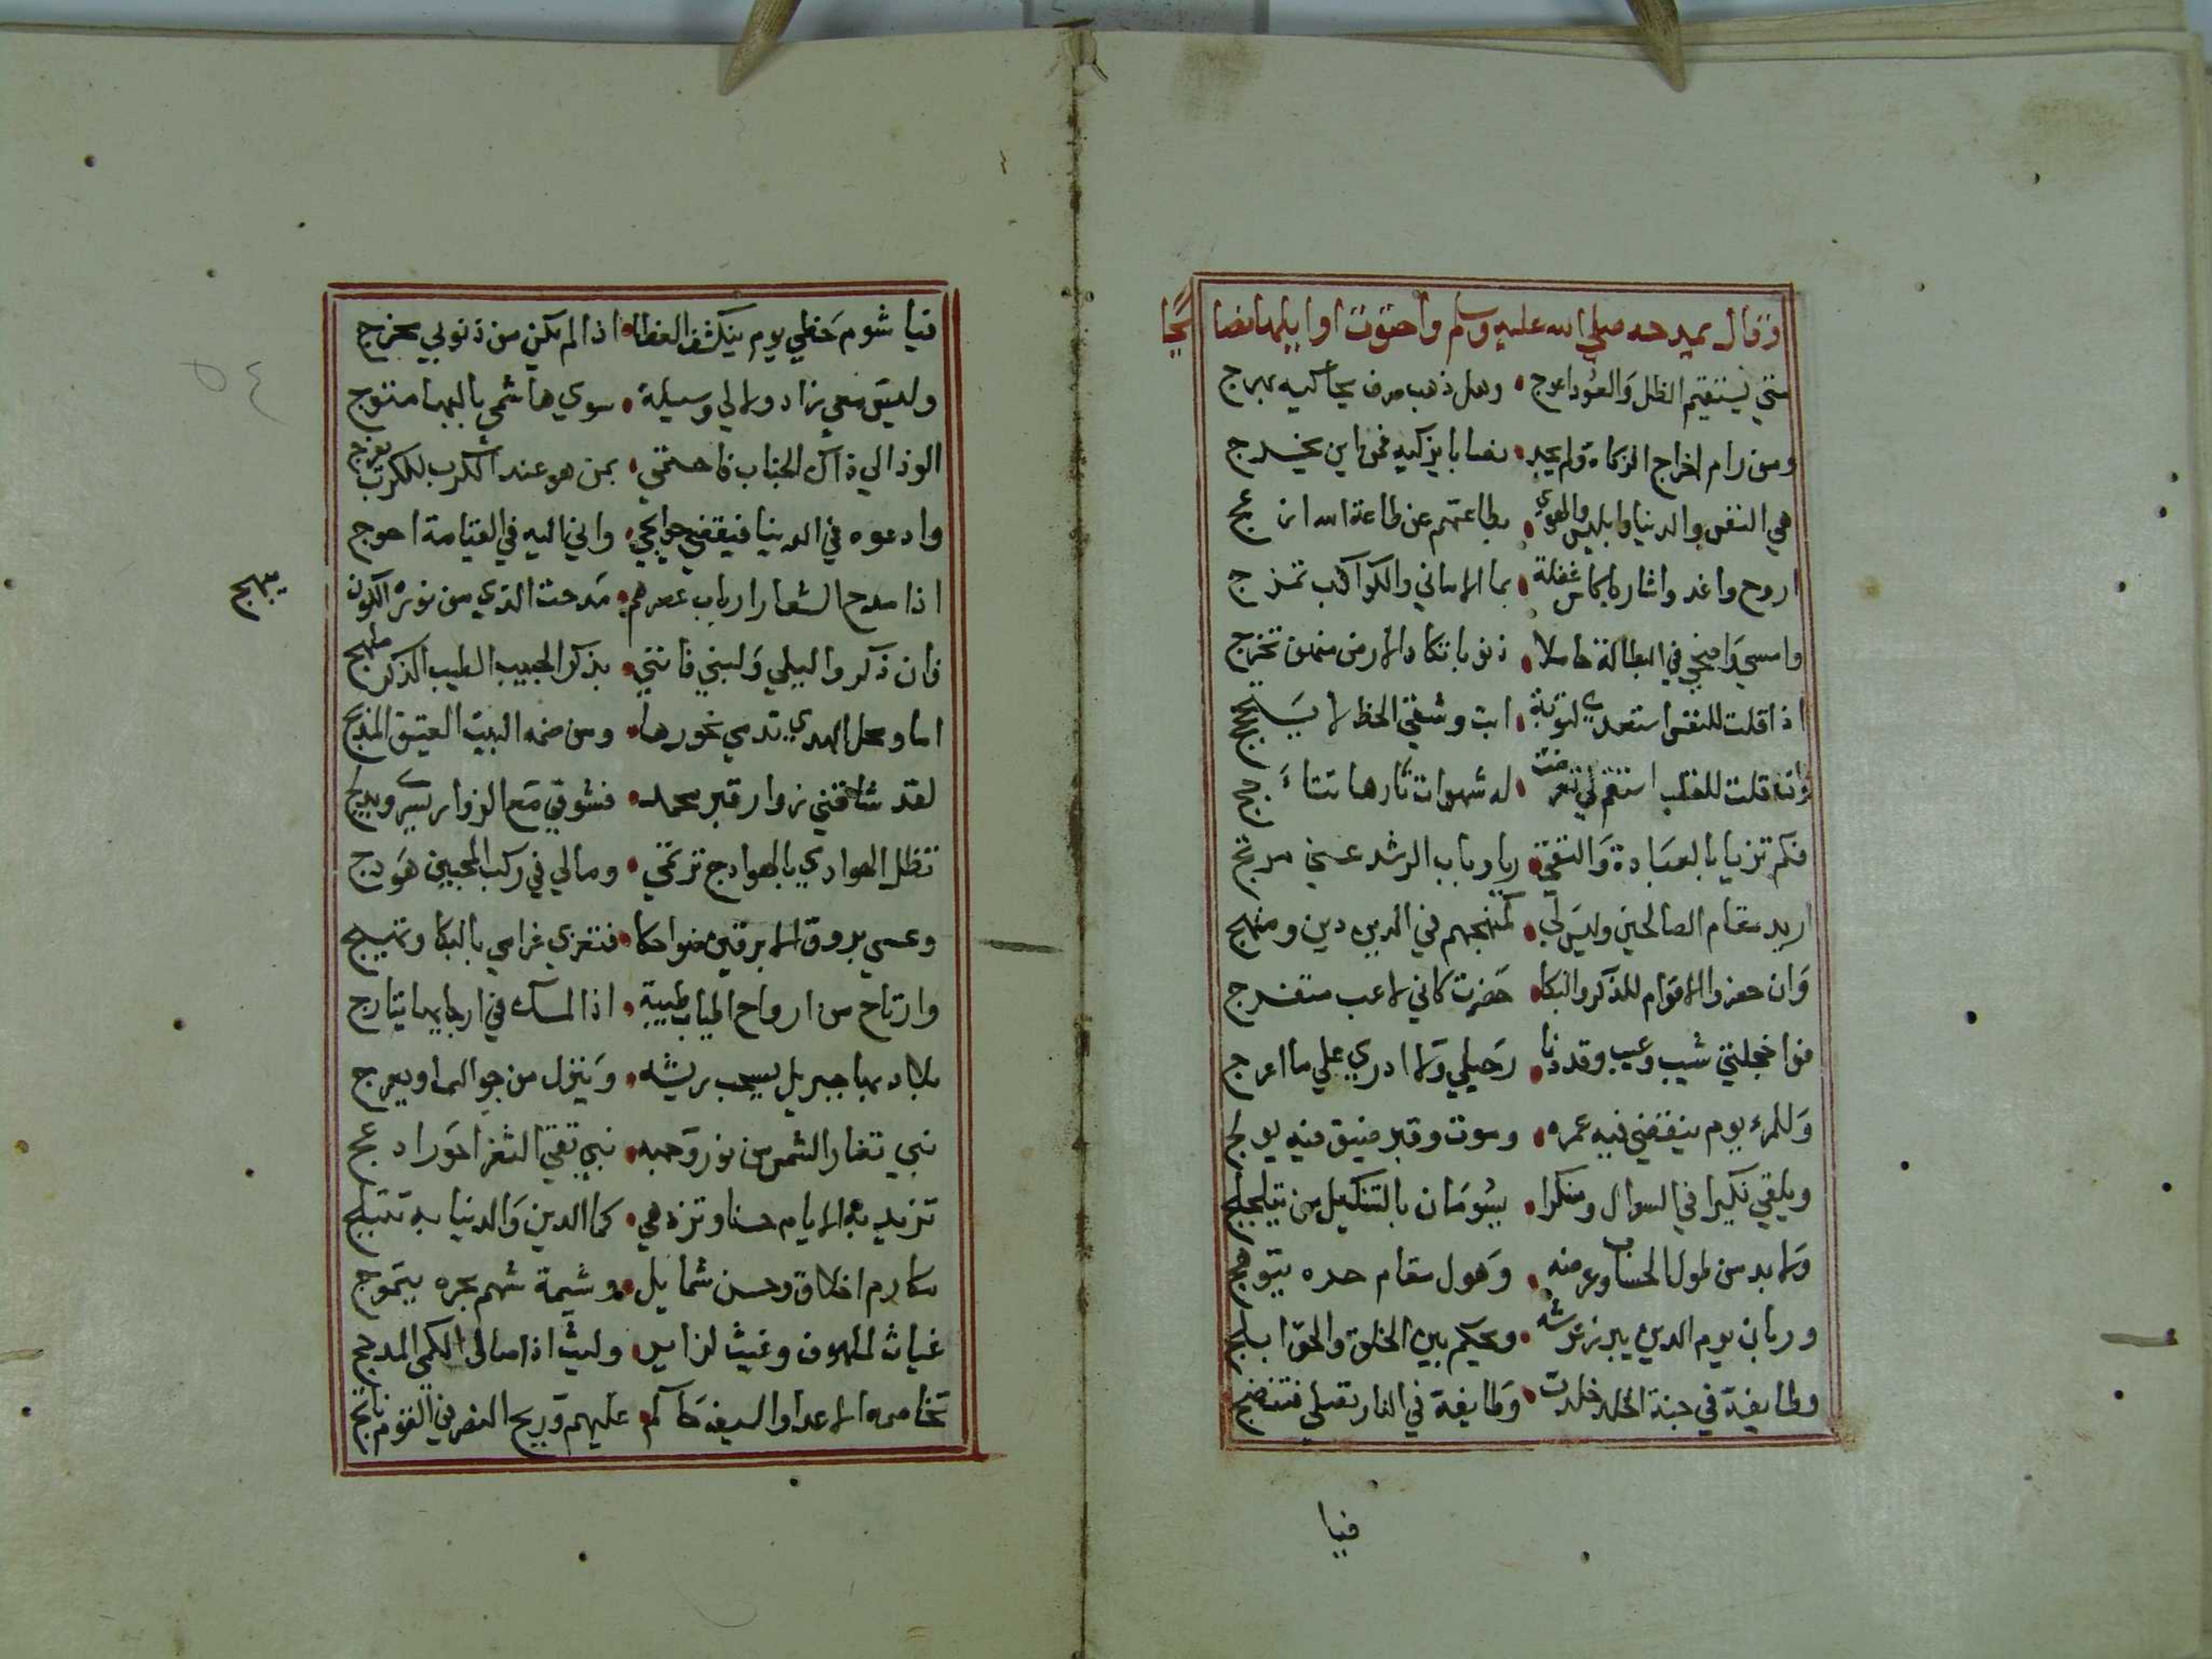 وقال يمدحه صلي الله عليه وسلم واحتوت اوايلها نصايحا
متي يستقيم الظل والعود اعوج وهل ذهب صرف يحاكيه بهرج
ومن رام اخراج الزكاة ولم يجد نصابا يزكيه فمن اين يخرج
هي النفس والدنيا وابليس والهوي بطاعتهم عن طاعة الله ازعج
اروح واغدوا شاربا كاس غفلة بما الاماني والكواكب تمزج
وامسي واضحي في البطالة حاملا ذنوبا تكاد الارض منهن تخرج
اذا قلت للنفس استعدي لتوبة ابت وشقي الحظ لا يسحج
وان قلت للقلب استقم لي تعرضت له شهوات نارها تتاجج
فكم تزيا بالعبادة والتقي وباب الرشد عني مرتج
اريد مقام الصالحين وليس لي كمنهجهم في الدين دين ومنهج
وان حضروا الاقوام للذكر والبكا حضرت كاني لاعب متفرج
فواخجلتي شيب وعيب وقد دنا رحيلي ولا ادري علي ما اعرج
وللمرء يوم ينقضي فيه عمره وموت وقبر ضيق فيه يولج
ويلقي نكيرا في السوال ومنكرا يسومان بالتنكيل من يتلجلج
ولا بد من طول الحساب وعرضه وهول مقام حره يتوهج
وربان يوم الدين يبرز عرشه ويحكم بين الخلق والحق ابلج
وطايفة في جنة الخلد خلدت وطايفة في النار تصلي فتنضج
فيا
فيا شوم حظي يوم ينكشف الغطا اذا لم يكن من ذنوبي مخرج
وليس معي زاد ولا لي وسيلة سوي هاشمي بالبها متوج
الوذ الي ذاك الجناب فاحتمي بمن هو عند الكرب للكرب يفرج
وادعوه في الدنيا فيقضي حوايجي واني اليه في القيامة احوج
اذا مدح الشعرا ارباب عصرهم مدحت الذي من نوره الكون يبهج
فان ذكروا ليلي ولبني فانني بذكر الحبيب الطيب الذكر ملهج
اما ومحل الهدي تدمي نحورها ومن ضمه البيت العتيق المدبج
لقد شاقني زوار قبر محمد فشوقي مع الزوار يسري ويدلج
تظل الهوادي بالهوادج ترتمي ومالي في ركب المحبين هودج
وعسي بروق الابرقين ضواحكا فتغري غرامي بالبكا وتهيج
وارتاح من ارواح اطياب طيبة اذا المسك في ارجايها يتارج
بلاد بها جبريل يسحب ريشه وينزل من جو السما ويعرج
نبي تغار الشمس من نور وجهه نبي نقي الثغر احور ادعج
تزيد به الايام حسنا وتزدهي كما الدين والدنيا به تتبلج
مكارم اخلاق وحسن شمايل وشيمة شهم بحره يتموج
غياث لملهوف وغيث لزاير وليث اذا صال الكمي المدجج
تخاصمه الاعدا والسيف حاكم عليهم وريح النصر في القوم تاجج
٥٤